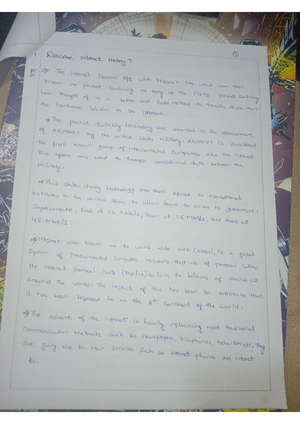 1. Describe Internet History ?
The internet started off with research into what was then
known as packet switching as early as the 1960s. Packet switching
was thought of as a better and faster method to transfer data than
the hardware solution to the problem.
→ The packet switching technology was essential to the development
of ARPANET by the United States military. ARPANET is considered
the first known group of interconnected computers aka the internet.
This system was used to transfer confidential data between the
military.
→ This data sharing technology was then opened to educational
institutes in the United States to allow them to access to government's
supercomputer, first at 56 kbit/s, then at 1.5 Mbit/s, and then at
45 Mbit/s.
→ Internet also known as the world wide web (www), is a global
system of interconnected computer networks that use
the internet protocol suite (TCP/IP) to link to billions of devices
around the world. The impact of this has been so extensive that
it has been referred to as the 8th continent of the world.
→ The advent of the internet is heavily influencing most traditional
communication methods such as newspapers, telephones, television etc. they
are giving rise to new services such as internet phones and internet